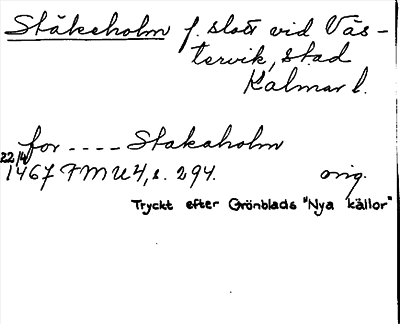 Stäkeholm f. slott vid Väs-
tervik, stad
Kalmar l.
for ---- Stakaholm
22/4
1467 FMU 4, s. 294. orig.
Tryckt efter Grönblads "Nya källor"